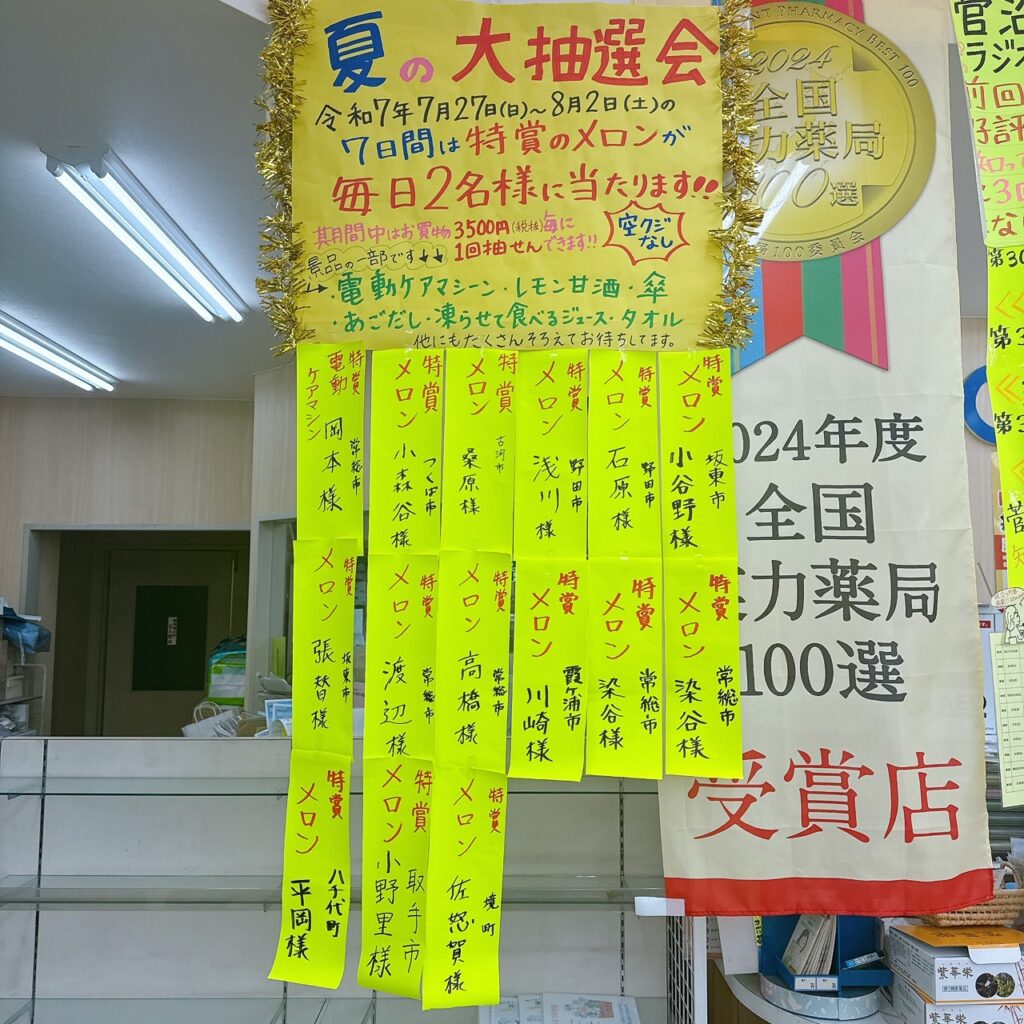 夏の大抽選会
令和7年7月27(日)~8月2日(土)の
7日間は特賞のメロンが
毎日2名様に当たります!!
期間中はお買物3500円(税抜)毎に
1回抽せんできます!!
空クジ
なし
景品の一部です↓↓
・電動ケアマシーン・レモン甘酒・傘
・あごだし・凍らせて食べるジュース・タオル
他にもたくさんそろえてお待ちしてます。
特賞
メロン
坂東市
小谷野様
特賞
メロン
野田市
石原様
特賞
メロン
野田市
浅川様
特賞
メロン
古河市
桑原様
特賞
メロン
つくば市
小森谷様
特賞
電動
ケアマシン
常総市
岡本様
特賞
メロン
常総市
染谷様
特賞
メロン
常総市
染谷様
特賞
メロン
霞ケ浦市
川崎様
特賞
メロン
常総市
高橋様
特賞
メロン
常総市
渡辺様
特賞
メロン
坂東市
張替様
特賞
メロン
境町
佐怒賀様
特賞
メロン
取手市
小野里様
特賞
メロン
八千代町
平岡様
PHARMACY BEST 100
2024
全国
力薬局
00選
100委員会
024年度
全国
力薬局
100選
受賞店
菅沼
ラジオ
前回
好評
第30
第3
第3
紫華栄
紫華栄